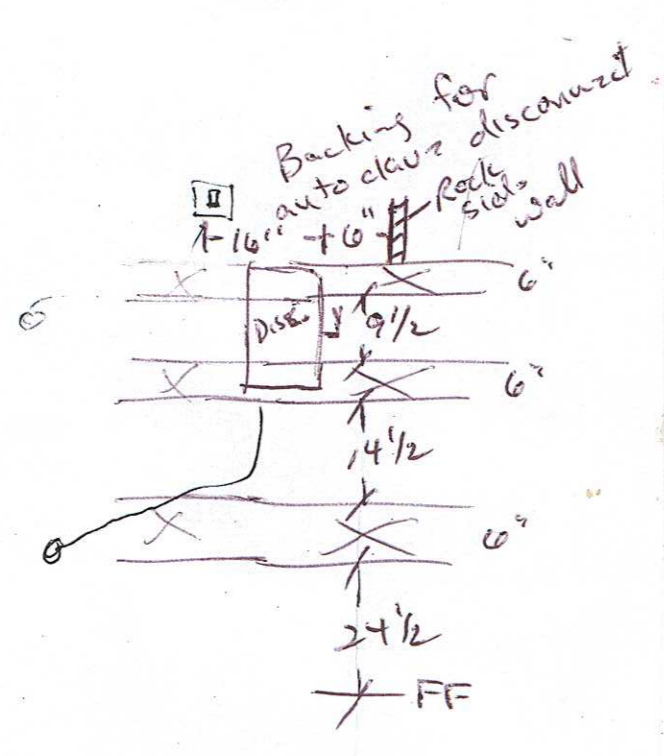 Backing for
autoclave disconnect
Rock
side
wall
16" 6"
6"
Disc.
9 1/2
6"
14 1/2
6"
24 1/2
FF